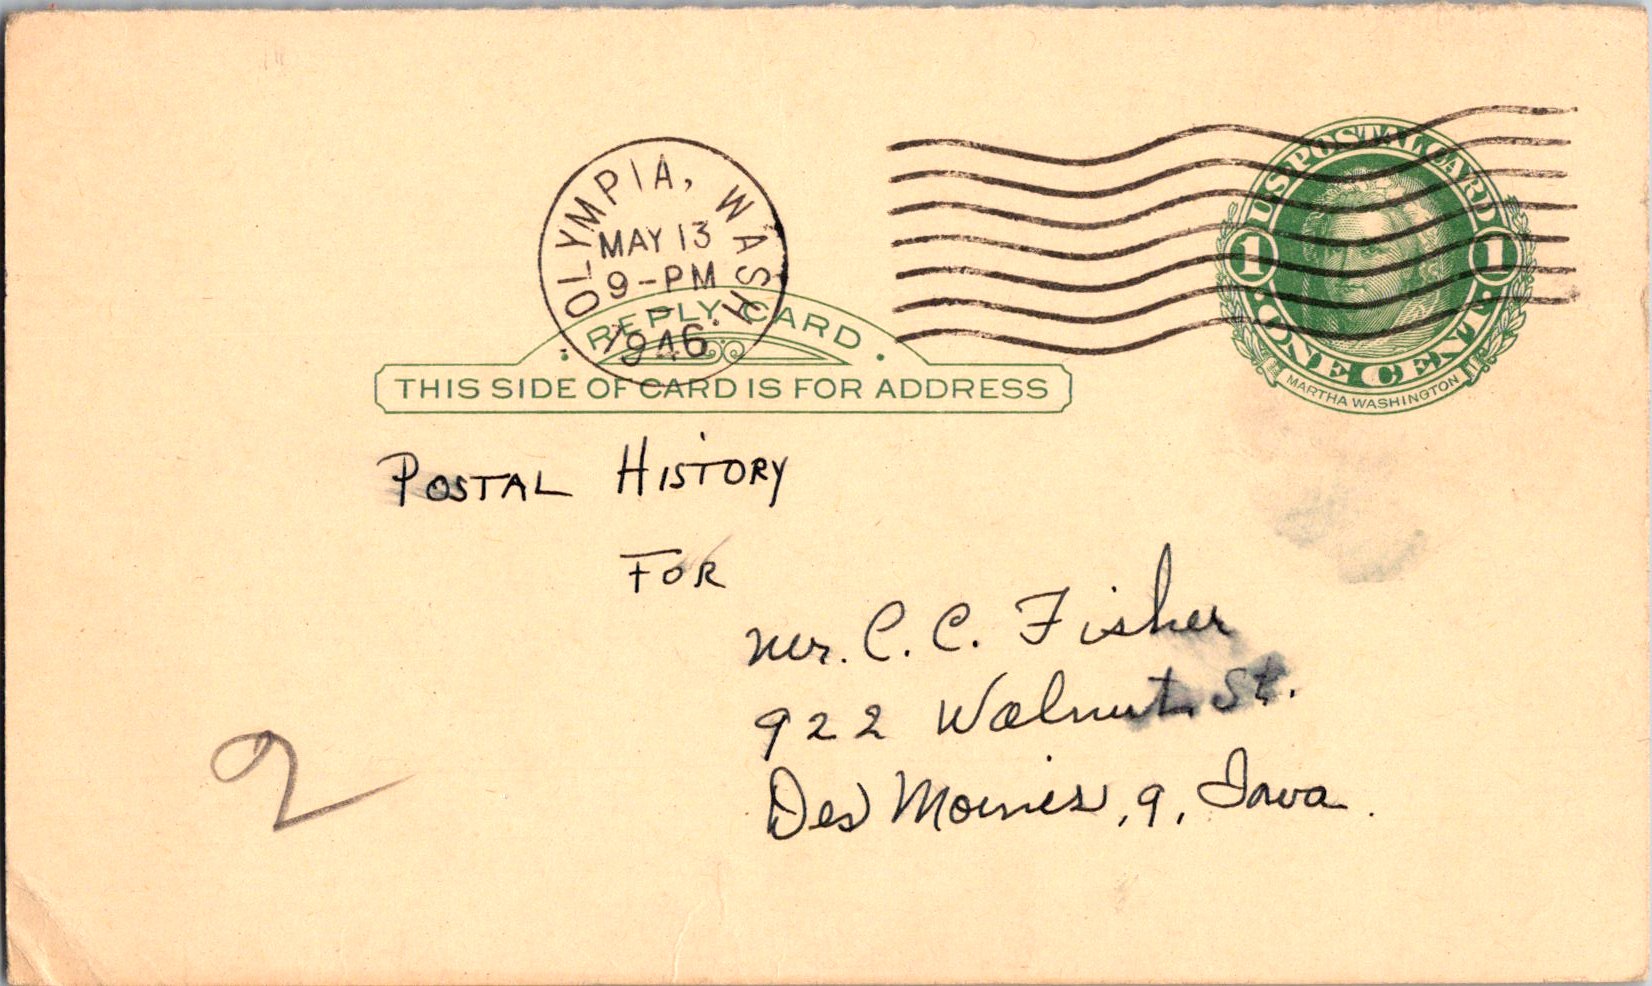 OLYMPIA, WASH.
MAY 13
9-PM
1946
U.S. POSTAL CARD
1 1
ONE CENT
MARTHA WASHINGTON
REPLY CARD
THIS SIDE OF CARD IS FOR ADDRESS
POSTAL HISTORY
FOR
Mr. C. C. Fisher
922 Walnut St.
Des Moines, 9, Iowa.
2